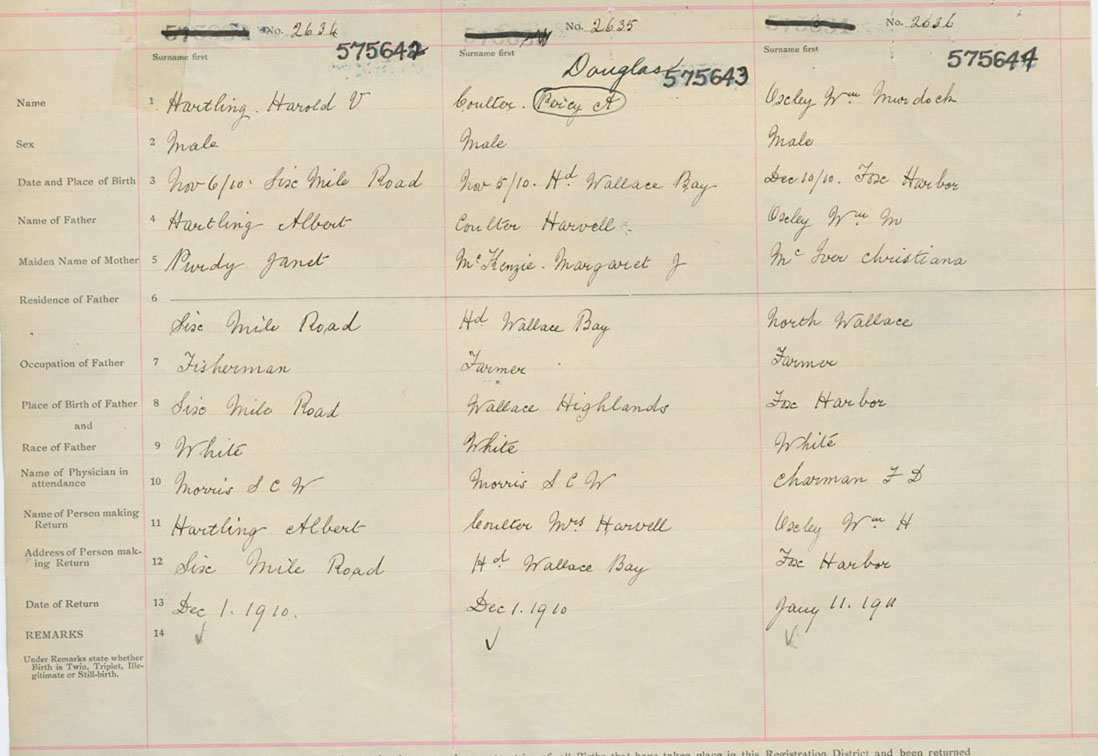 No. 2634 No. 2635 No. 2636
Surname first Surname first Surname first
575642 575643 575644
Douglas
Name 1 Hartling. Harold V Coulter. Percy A Oxley Wm Murdock
Sex 2 Male Male Male
Date and Place of Birth 3 Nov 6/10. Six Mile Road Nov 5/10. Hd Wallace Bay Dec 10/10. Fox Harbor
Name of Father 4 Hartling Albert Coulter Harvell. Oxley Wm M
Maiden Name of Mother 5 Purdy Janet McKenzie. Margaret J McIver Christiana
Residence of Father 6
Six Mile Road Hd Wallace Bay North Wallace
Occupation of Father 7 Fisherman Farmer Farmer
Place of Birth of Father 8 Six Mile Road Wallace Highlands Fox Harbor
and
Race of Father 9 White White White
Name of Physician in
attendance 10 Morris S C W Morris S C W Charman F D
Name of Person making
Return 11 Hartling Albert Coulter Mrs Harvell Oxley Wm H
Address of Person mak-
ing Return 12 Six Mile Road Hd Wallace Bay Fox Harbor
Date of Return 13 Dec 1. 1910. Dec 1. 1910 Jany 11. 1911
REMARKS 14
Under Remarks state whether
Birth is Twin, Triplet, Ille-
gitimate or Still-birth.
of all Births that have taken place in this Registration District and been returned